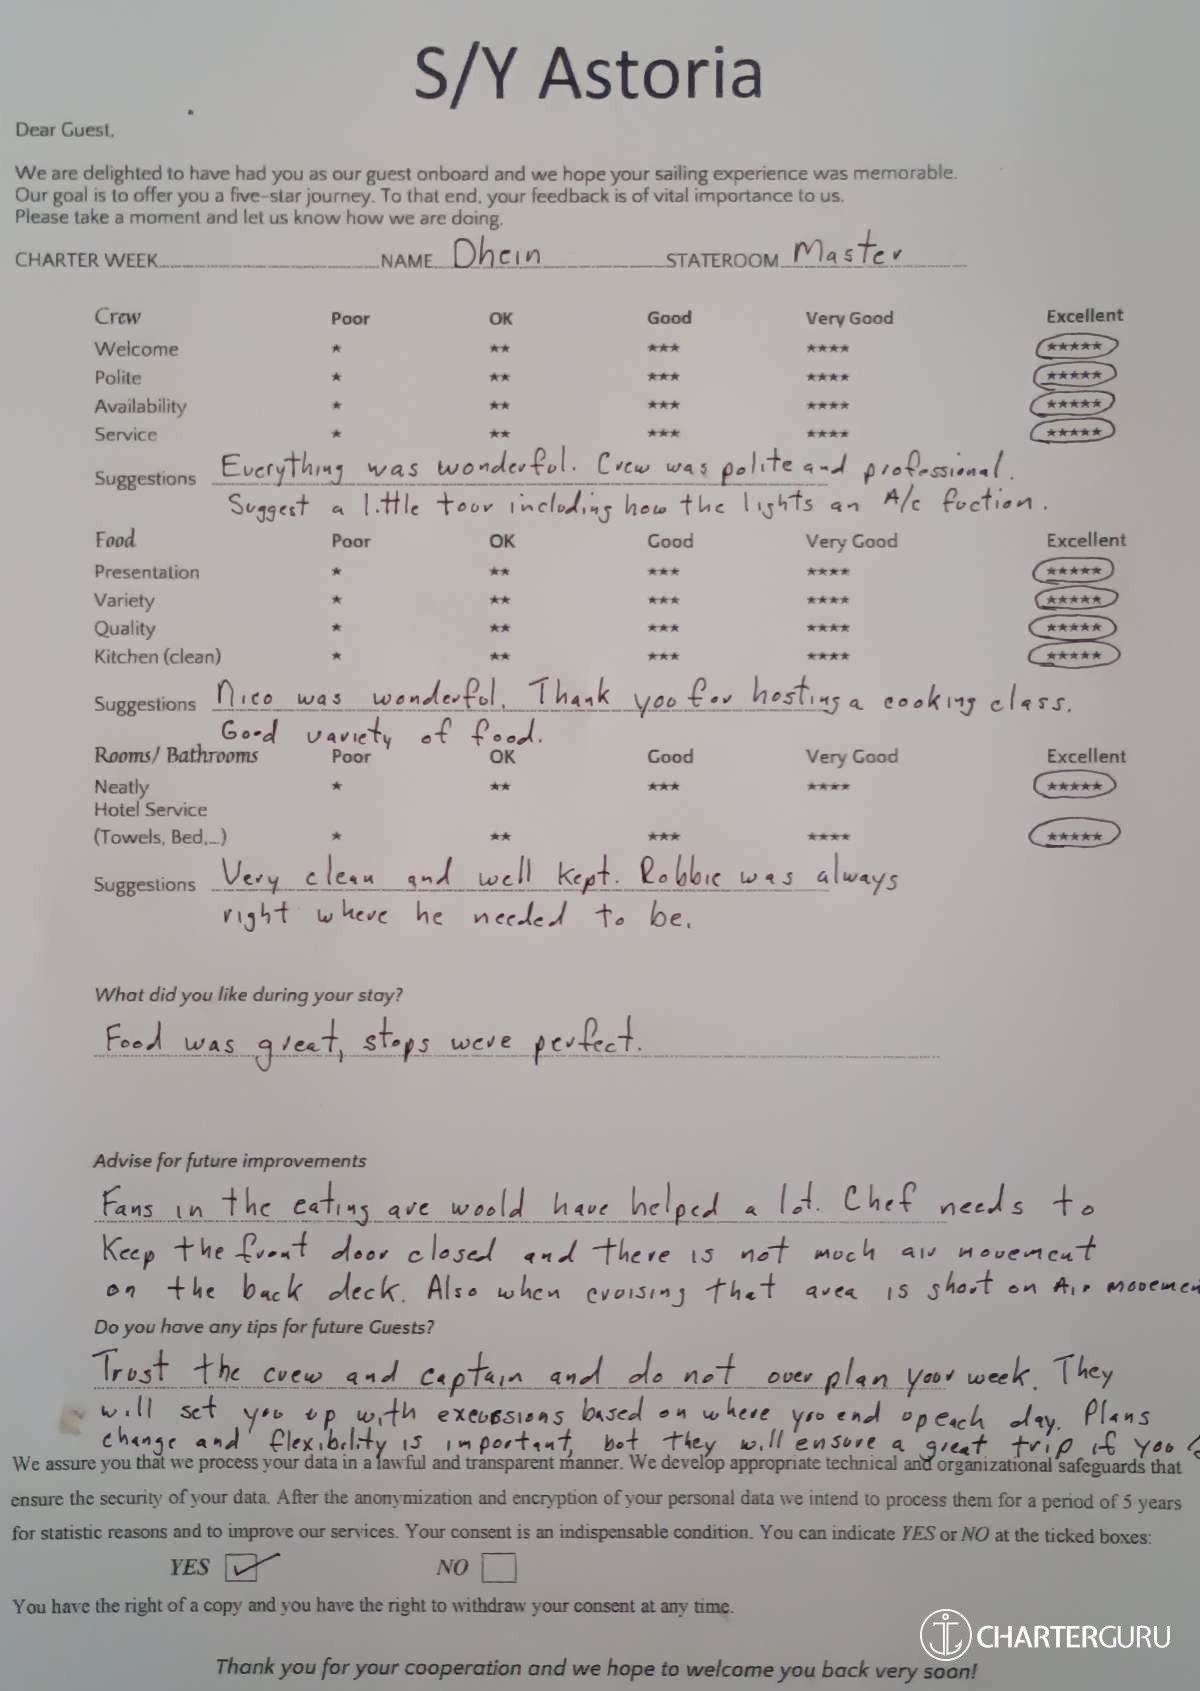 S/Y Astoria
Dear Guest,
We are delighted to have had you as our guest onboard and we hope your sailing experience was memorable.
Our goal is to offer you a five-star journey. To that end, your feedback is of vital importance to us.
Please take a moment and let us know how we are doing.
CHARTER WEEK NAME Dhein STATEROOM Master
Crew Poor OK Good Very Good Excellent
Welcome * ** *** **** *****
Polite * ** *** **** *****
Availability * ** *** **** *****
Service * ** *** **** *****
Suggestions Everything was wonderful. Crew was polite and professional.
Suggest a little tour including how the lights an A/c fuction.
Food Poor OK Good Very Good Excellent
Presentation * ** *** **** *****
Variety * ** *** **** *****
Quality * ** *** **** *****
Kitchen (clean) * ** *** **** *****
Suggestions Nico was wonderful. Thank you for hosting a cooking class.
Good variety of food.
Rooms/ Bathrooms Poor OK Good Very Good Excellent
Neatly * ** *** **** *****
Hotel Service
(Towels, Bed,...) * ** *** **** *****
Suggestions Very clean and well kept. Robbie was always
right where he needed to be.
What did you like during your stay?
Food was great, stops were perfect.
Advise for future improvements
Fans in the eating are would have helped a lot. Chef needs to
Keep the front door closed and there is not much air movement
on the back deck. Also when cruising that area is short on Air movemen
Do you have any tips for future Guests?
Trust the crew and captain and do not over plan your week. They
will set you up with excursions based on where you end up each day. Plans
change and flexibility is important, but they will ensure a great trip if you
We assure you that we process your data in a lawful and transparent manner. We develop appropriate technical and organizational safeguards that
ensure the security of your data. After the anonymization and encryption of your personal data we intend to process them for a period of 5 years
for statistic reasons and to improve our services. Your consent is an indispensable condition. You can indicate YES or NO at the ticked boxes:
YES NO
You have the right of a copy and you have the right to withdraw your consent at any time.
CHARTERGURU
Thank you for your cooperation and we hope to welcome you back very soon!